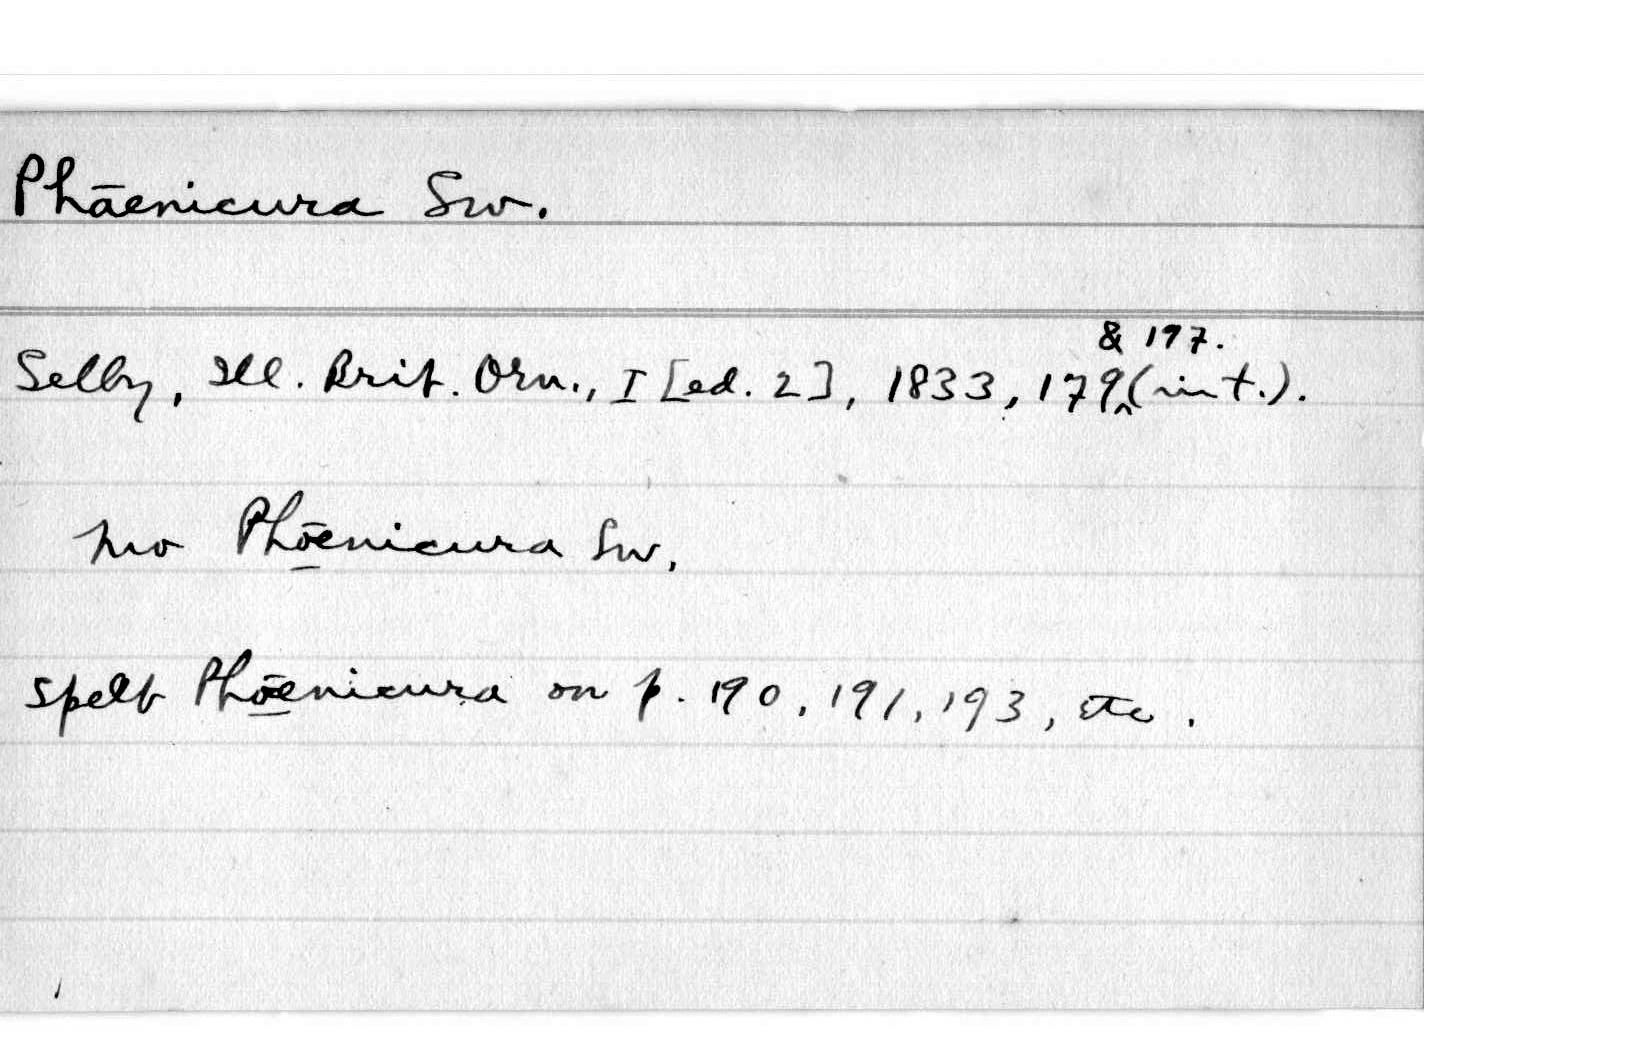 Phāenicura Sw.
Selby, Ill. Brit. Orn., I [ed. 2], 1833, 179 & 197. (int.).
pro Phōenicura Sw.
spelt Phōenicura on p. 190, 191, 193, etc.